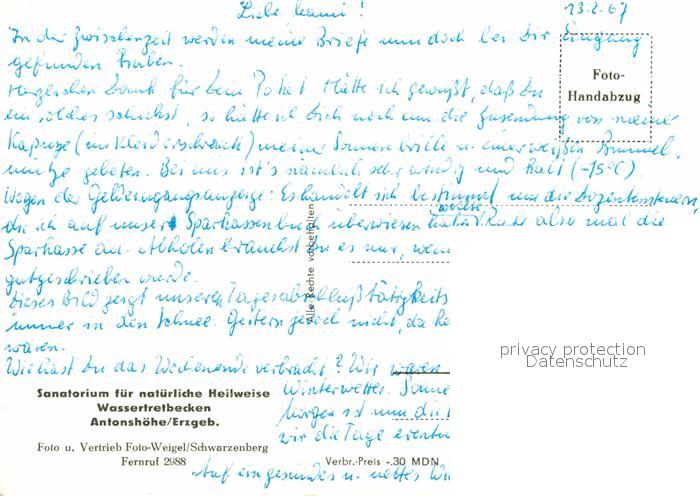 Liebe Mami! 13.2.67
In der Zwischenzeit werden meine Briefe nun doch bei Dir Eingang
gefunden haben.
Herzlichen Dank für Dein Paket. Hätte ich gewußt, daß Du
ein solches schickst, so hätte ich Dich noch um die Zusendung von meiner
Kapuze (im Kleiderschrank) meiner Sonnenbrille u. einer weißen Bummel
mütze gebeten. Bei uns ist's nämlich sehr windig und kalt (-15°C).
Wegen der Geldeingangsanzeige: Es handelt sich bestimmt um die
die ich auf unser Sparkassenbuch überwiesen hatte. Rufe also mal die
Sparkasse an. Abholen brauchst Du es nur, wenn
gutgeschrieben wurde.
Dieses Bild zeigt unsere Tagesabschlußtätigkeit
immer in den Schnee. Gestern jedoch nicht, da
waren.
Wie hast Du das Wochenende verbracht? Wir waren
Winterwetter. Sonne
Morgen ist nun die
wir die Tage
Auf ein gesundes u. nettes
Foto-
Handabzug
Alle Rechte vorbehalten
privacy protection
Datenschutz
Sanatorium für natürliche Heilweise
Wassertretbecken
Antonshöhe/Erzgeb.
Foto u. Vertrieb Foto-Weigel/Schwarzenberg
Fernruf 2988
Verbr.-Preis -.30 MDN